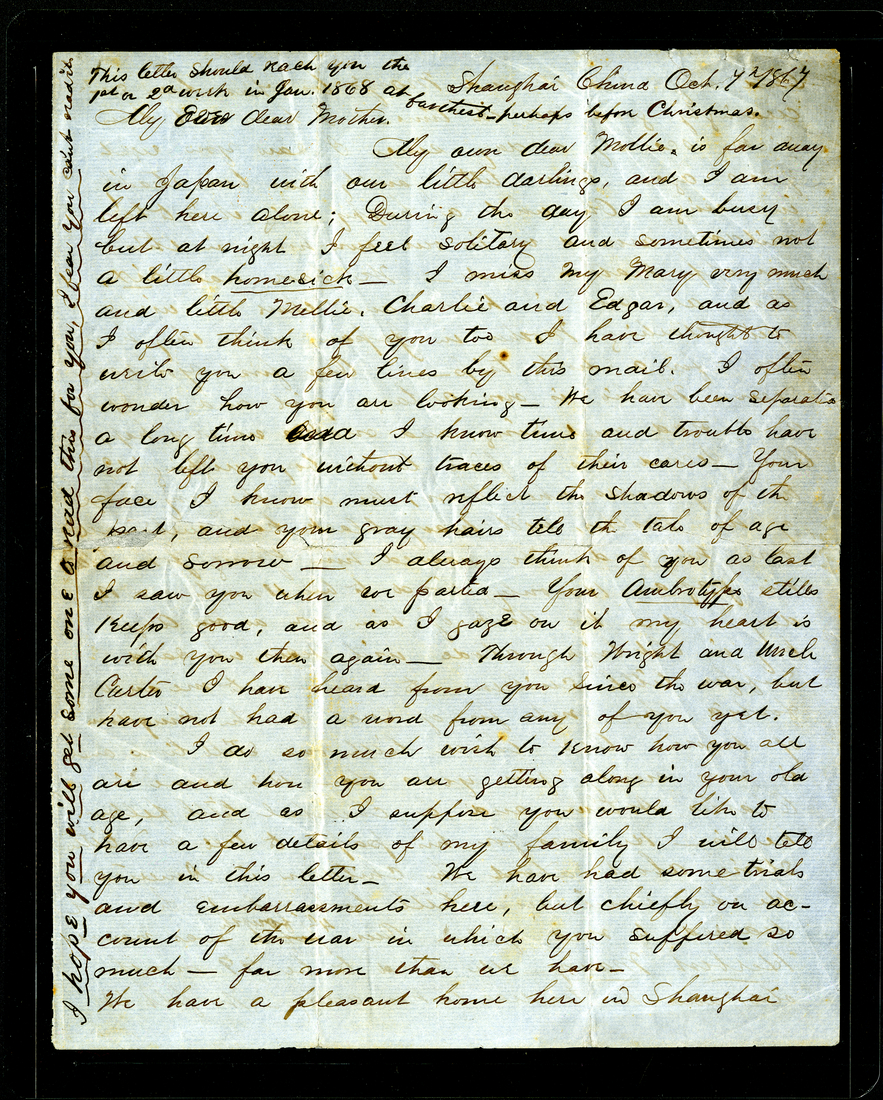 This letter should reach you the
1st or 2d week in Jan. 1868 at farthest - perhaps before Christmas.
Shanghai China Oct. 7th 1867
My Own dear Mother.
My own dear Mollie. is far away
in Japan with our little darlings, and I am
left here alone; During the day I am busy
but at night I feel solitary and sometimes not
a little homesick — I miss my Mary very much
and little Mellie. Charlie and Edgar, and as
I often think of you too I have thought to
write you a few lines by this mail. I often
wonder how you are looking — We have been separated
a long time and I know time and trouble have
not left you without traces of their cares — Your
face I know must reflect the shadows of the
past, and your gray hairs tell the tale of age
and sorrow — I always think of you as last
I saw you when we parted — Your Ambrotype stills
keeps good, and as I gaze on it my heart is
with you then again — Through Wright and Uncle
Carter I have heard from you since the war, but
have not had a word from any of you yet.
I do so much wish to know how you all
are and how you are getting along in your old
age, and as I suppose you would like to
have a few details of my family I will tell
you in this letter — We have had some trials
and embarrassments here, but chiefly on ac-
count of the war in which you suffered so
much — far more than we have —
We have a pleasant home here in Shanghai
I hope you will get some one to read this for you, I fear you cant read it.